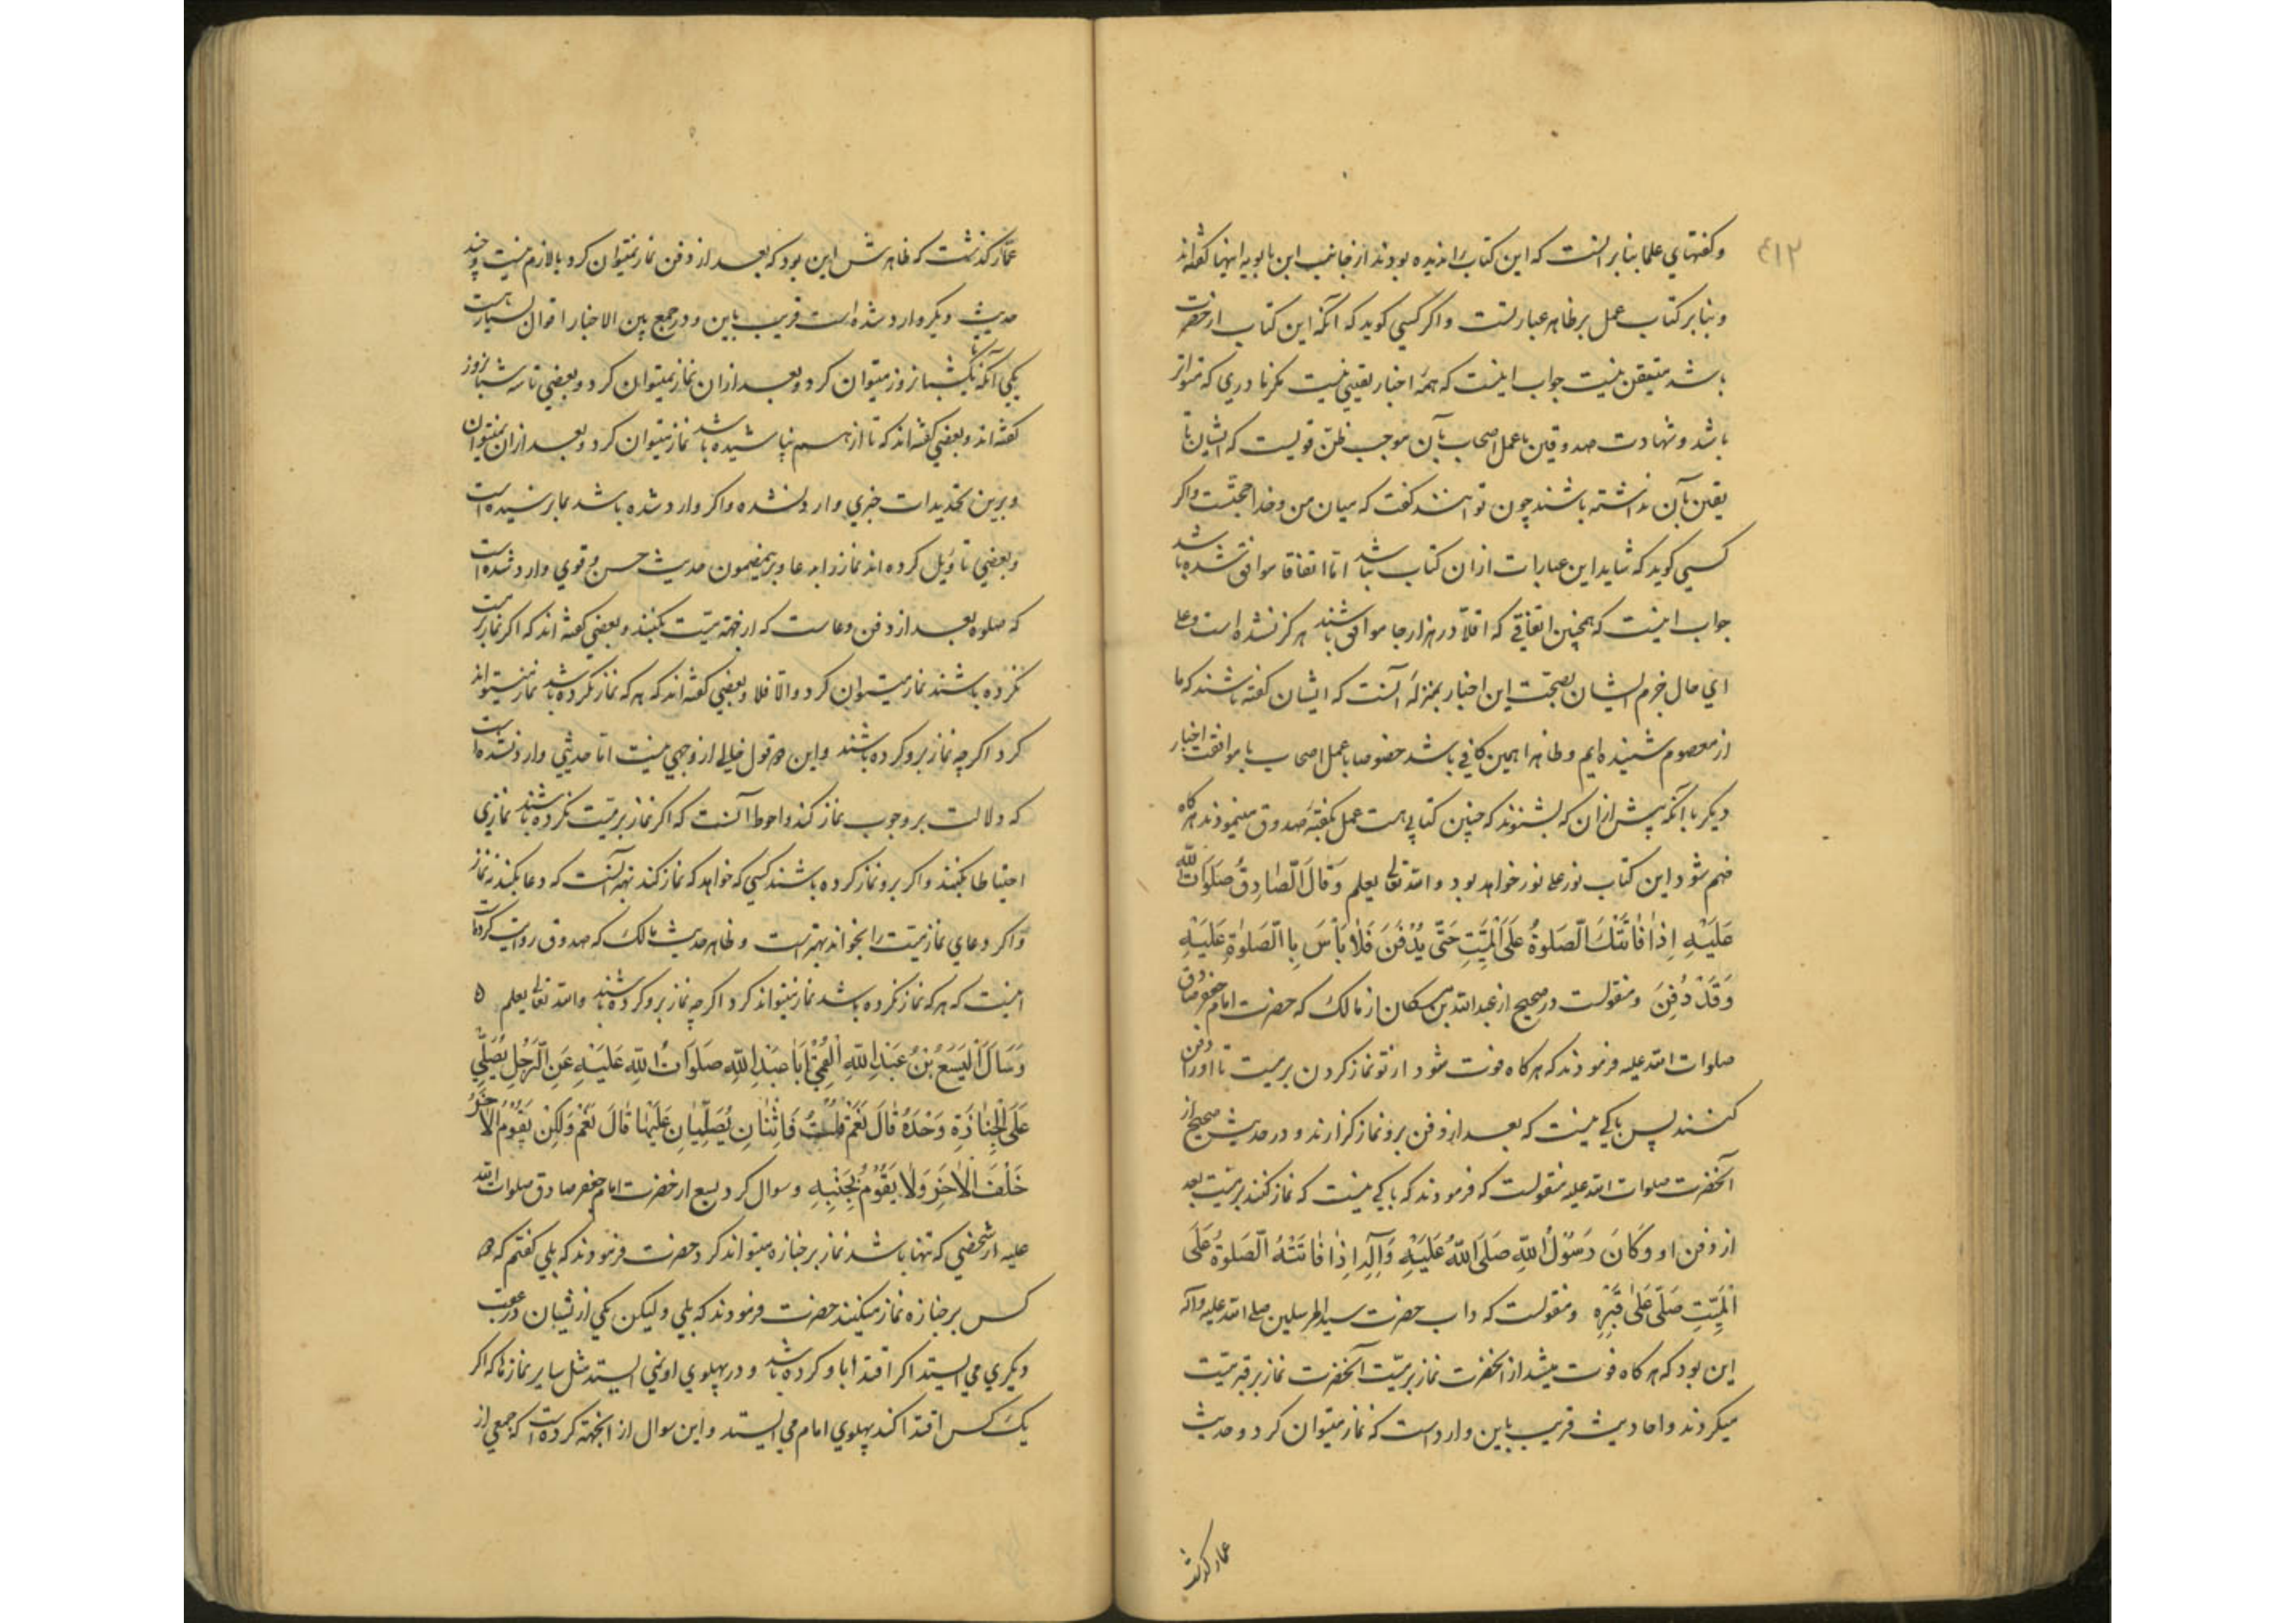 ۴۱۲
وکفتهای علما بنابر آنست که این کتاب را ندیده بودند از جانب ابن بابویه اینها گفته‌اند
وبنابر کتاب عمل بر ظاهر عبارتست واکر کسی کوید که آنکه این کتاب از حضرت
باشد متیقن نیست جواب اینست که همه اخبار یقینی نیست مکر نادری که متواتر
باشد وشهادت صدوقین با عمل اصحاب بآن موجب ظن قویست که ایشان تا
یقین بآن نداشته باشند چون توانند کفت که میان من وخدا حجتست واکر
کسی کوید که شاید این عبارات ازان کتاب نباشد اما اتفاقا موافق شده باشد
جواب اینست که همچنین اتفاقی که اقلا در هزار جا موافق باشند هرکز نشده است وعلی
ای حال جزم ایشان بصحت این اخبار بمنزله آنست که ایشان کفته باشند که ما
از معصوم شنیده‌ایم وظاهرا همین کافی باشد خصوصا با عمل اصحاب یا موافقت اخبار
دیکر با آنکه پیش ازان که بشنوند که چنین کتابی هست عمل بکفته صدوق مینمودند هرکاه
ضم شود این کتاب نور علی نور خواهد بود والله تعالی یعلم وَقَالَ الصَّادِقُ صَلَوَاتُ اللّٰهِ
عَلَیْهِ اِذَا فَاتَتْكَ الصَّلوةُ عَلَی الْمَیِّتِ حَتّٰی یُدْفَنَ فَلَا بَأْسَ بِالصَّلوٰةِ عَلَیْهِ
وَقَدْ دُفِنَ ومنقولست در صحیح از عبدالله بن مسکان از مالک که حضرت امام جعفر صادق
صلوات الله علیه فرمودند که هرکاه فوت شود از تو نماز کردن بر میت تا او را دفن
کنند پس باکی نیست که بعد از دفن برو نماز کزارند ودر حدیث صحیح از
آنحضرت صلوات الله علیه منقولست که فرمودند که باکی نیست که نماز کنند بر میت بعد
از دفن او وَکَانَ رَسُوْلُ اللّٰهِ صَلَّی اللّٰهُ عَلَیْهِ وَآلِهِ اِذَا فَاتَتْهُ الصَّلوةُ عَلَی
الْمَیِّتِ صَلّٰی عَلٰی قَبْرِهِ ومنقولست که داب حضرت سید المرسلین صلی الله علیه وآله
این بود که هرکاه فوت میشد از آنحضرت نماز بر میت آنحضرت نماز بر قبر میت
میکردند واحادیث قریب باین وارد است که نماز میتوان کرد وحدیث
عمار کذشت
عمار کذشت که ظاهرش این بود که بعد از دفن نماز نمیتوان کرد یا لازم نیست وچند
حدیث دیکر وارد شده است قریب باین ودر جمع بین الاخبار اقوال بسیارست
یکی آنکه تا یکشبانروز میتوان کرد وبعد ازان نماز نمیتوان کرد وبعضی تا سه شبانروز
کفته‌اند وبعضی کفته‌اند که تا از هم نپاشیده باشد نماز میتوان کرد وبعد ازان نمیتوان
وبرین تحدیدات خبری وارد نشده واکر وارد شده باشد بما نرسیده است
وبعضی تاویل کرده‌اند نماز را بدعا وبرین مضمون حدیث حسن وقوی وارد شده است
که صلوة بعد از دفن دعاست که از جهة میت بکنند وبعضی کفته‌اند که اکر نماز بر میت
نکرده باشند نماز میتوان کرد والا فلا وبعضی کفته‌اند که هر که نماز نکرده باشد نماز میتواند
کرد اکرچه نماز برو کرده باشند واین دو قول خالی از وجهی نیست اما حدیثی وارد نشده است
که دلالت بر وجوب نماز کند واحوط آنست که اکر نماز بر میت نکرده باشند نمازی
احتیاطا بکنند واکر برو نماز کرده باشند کسی که خواهد که نماز کند بهتر آنست که دعا بکند نه نماز
واکر دعای نماز میت را بخواند بهتر است وظاهر حدیث مالک که صدوق روایت کرده است
اینست که هر که نماز نکرده باشد نماز میتواند کرد اکرچه نماز برو کرده باشند والله تعالی یعلم
وَسَأَلَ الْیَسَعُ بْنُ عَبْدِ اللّٰهِ الْقُمِّیُّ اَبَا عَبْدِ اللّٰهِ صَلَوَاتُ اللّٰهِ عَلَیْهِ عَنِ الرَّجُلِ یُصَلِّی
عَلَی الْجِنَازَةِ وَحْدَهُ قَالَ نَعَمْ قُلْتُ فَاثْنَانِ یُصَلِّیَانِ عَلَیْهَا قَالَ نَعَمْ وَلٰکِنْ یَقُوْمُ الْاٰخَرُ
خَلْفَ الْاٰخَرِ وَلَا یَقُوْمُ بِجَنْبِهِ وسوال کرد یسع از حضرت امام جعفر صادق صلوات الله
علیه از شخصی که تنها باشد نماز بر جنازه میتواند کرد حضرت فرمودند که بلی کفتم که دو
کس بر جنازه نماز میکنند حضرت فرمودند که بلی ولیکن یکی از یشان در عقب
دیکری می ایستد اکر اقتدا باو کرده باشد ودر پهلوی او نمی ایستد مثل سایر نمازها که اکر
یک کس اقتدا کند پهلوی امام می ایستد واین سوال از آنجهة کرده است که جمعی از